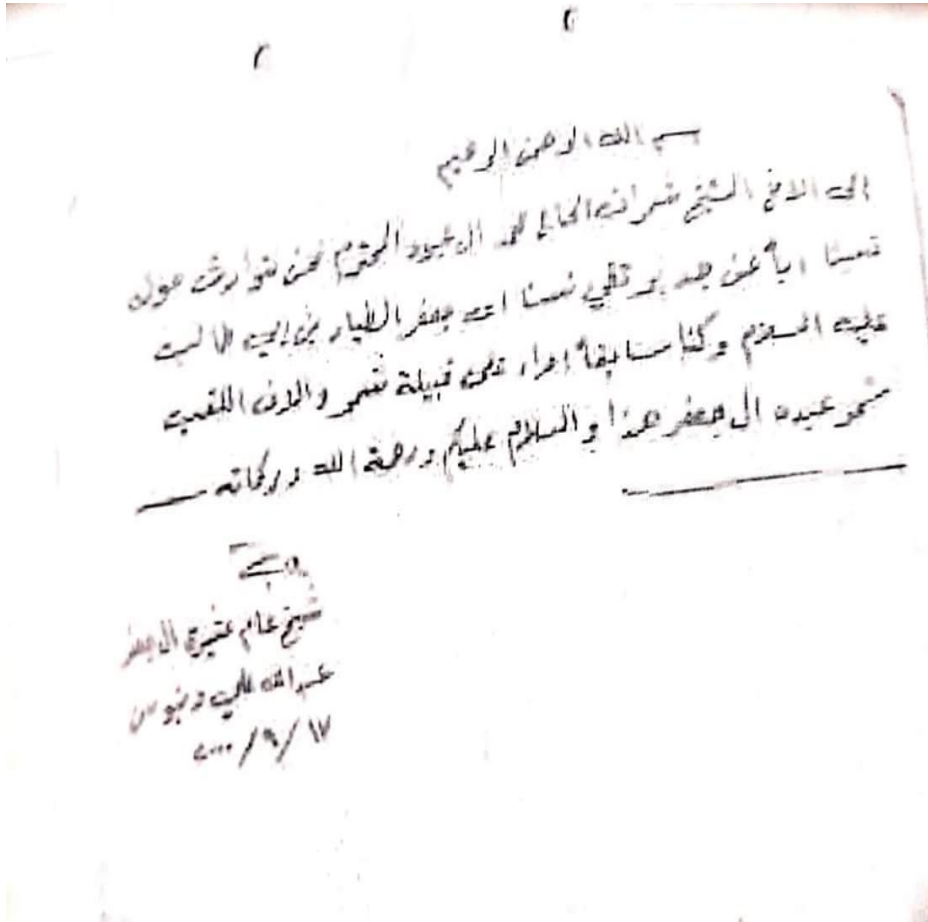 ٢ ٢
بسم الله الرحمن الرحيم
الى الاخ الشيخ المحترم نحن نتوارث حول
نسبنا اباً عن جد يرتقي نسبنا الى جعفر الطيار بن ابي طالب
عليه السلام وكنا سابقاً امراء على قبيلة شمر والان اللقب
شمر عبده ال جعفر هذا والسلام عليكم ورحمة الله وبركاته
شيخ عام عشيرة ال جعفر
عبدالله علي
١٧/٩/٢٠٠٠